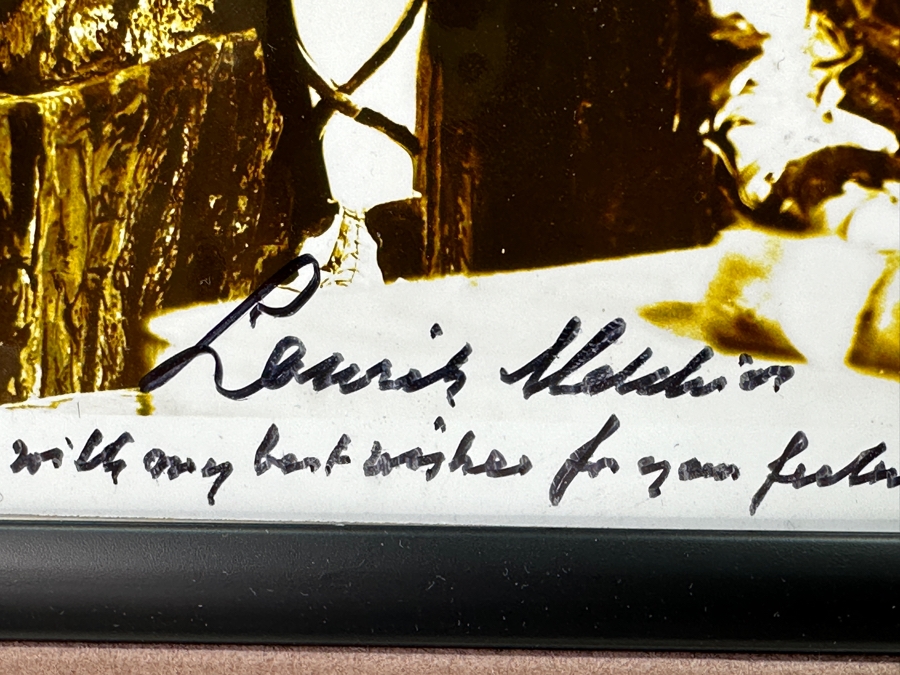 Lauritz Melchior
with my best wishes for your